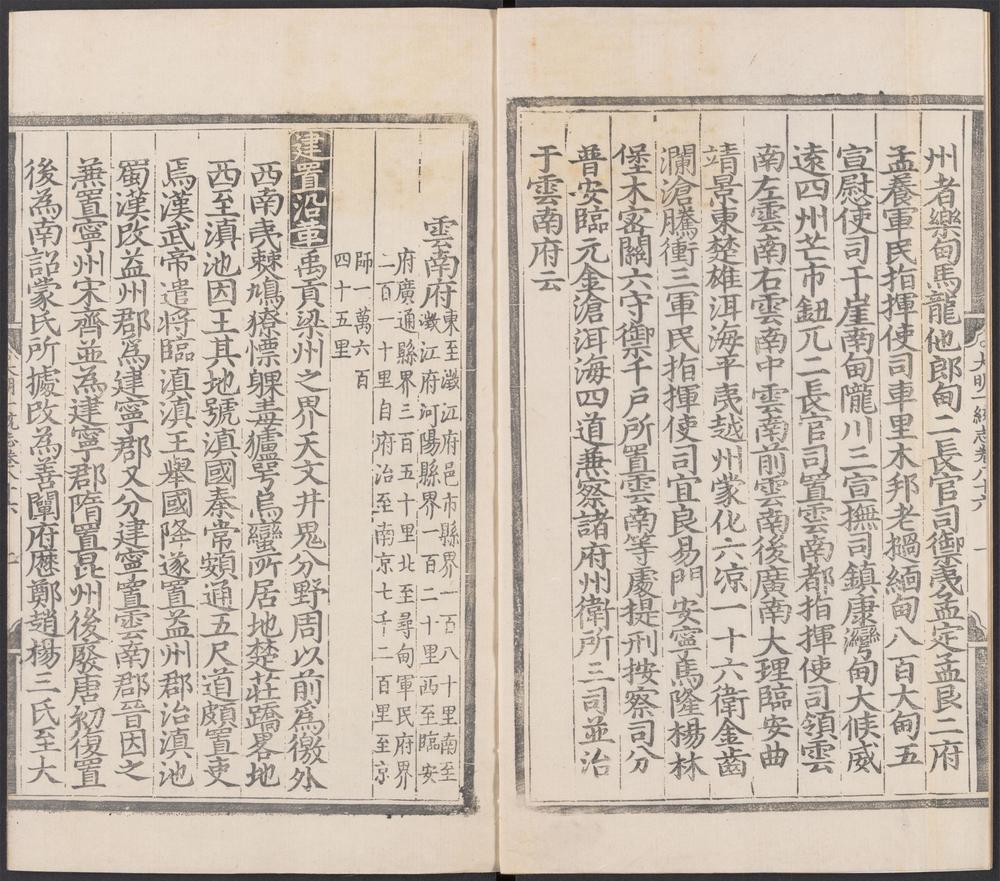 州者樂甸馬龍他郎甸二長官司禦夷孟定孟艮二府
孟養軍民指揮使司車里木邦老撾緬甸八百大甸五
宣慰使司干崖南甸隴川三宣撫司鎮康灣甸大候威
遠四州芒市鈕兀二長官司置雲南都指揮使司領雲
南左雲南右雲南中雲南前雲南後廣南大理臨安曲
靖景東楚雄洱海平夷越州蒙化六凉一十六衛金齒
瀾滄騰衝三軍民指揮使司宜良易門安寧馬隆楊林
堡木密關六守禦千戶所置雲南等處提刑按察司分
普安臨元金滄洱海四道兼察諸府州衛所三司並治
于雲南府云
大明一統志卷八十六
雲南府東至澂江府邑市縣界一百八十里南至
澂江府河陽縣界一百二十里西至臨安
府廣通縣界三百五十里北至尋甸軍民府界
二百一十里自府治至南京七千二百里至京
師一萬六百
四十五里
建置沿革禹貢梁州之界天文井鬼分野周以前爲徼外
西南夷僰鳩獠慓躶毒獹咢烏蠻所居地楚莊蹻畧地
西至滇池因王其地號滇國秦常頞通五尺道頗置吏
焉漢武帝遣將臨滇滇王舉國降遂置益州郡治滇池
蜀漢改益州郡爲建寧郡又分建寧置雲南郡晉因之
兼置寧州宋齊並爲建寧郡隋置昆州後廢唐初復置
後爲南詔蒙氏所據改爲善闡府歷鄭趙楊三氏至大